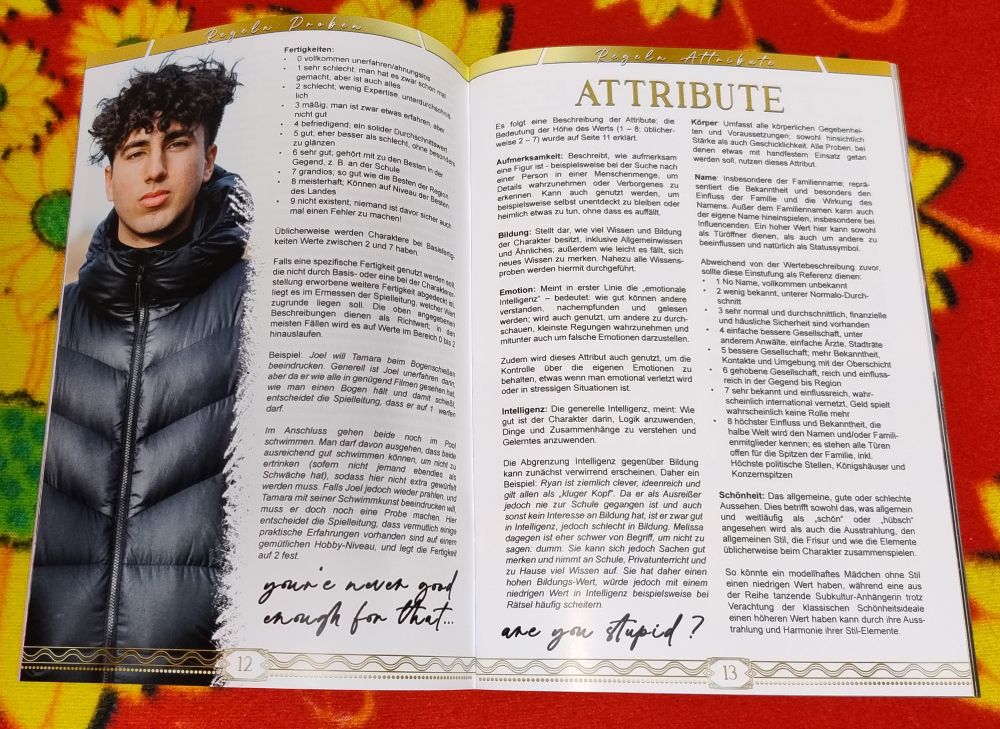 Regeln: Proben
Fertigkeiten:
• 0 vollkommen unerfahren/ahnungslos
• 1 sehr schlecht; man hat es zwar schon mal
gemacht, aber ist auch alles
• 2 schlecht; wenig Expertise, unterdurchschnitt-
lich
• 3 mäßig; man ist zwar etwas erfahren, aber
nicht gut
• 4 befriedigend; ein solider Durchschnittswert
• 5 gut; eher besser als schlecht, ohne besonders
zu glänzen
• 6 sehr gut; gehört mit zu den Besten in der
Gegend, z. B. an der Schule
• 7 grandios; so gut wie die Besten der Region
• 8 meisterhaft; Können auf Niveau der Besten
des Landes
• 9 nicht existent; niemand ist davor sicher auch
mal einen Fehler zu machen!
Üblicherweise werden Charaktere bei Basisfertig-
keiten Werte zwischen 2 und 7 haben.
Falls eine spezifische Fertigkeit genutzt werden soll,
die nicht durch Basis- oder eine bei der Charakterer-
stellung erworbene weitere Fertigkeit abgedeckt ist,
liegt es im Ermessen der Spielleitung, welcher Wert
zugrunde liegen soll. Die oben angegebenen
Beschreibungen dienen als Richtwert; in den
meisten Fällen wird es auf Werte im Bereich 0 bis 2
hinauslaufen.
Beispiel: Joel will Tamara beim Bogenschießen
beeindrucken. Generell ist Joel unerfahren darin,
aber da er wie alle in genügend Filmen gesehen hat,
wie man einen Bogen hält und damit schießt,
entscheidet die Spielleitung, dass er auf 1 werfen
darf.
Im Anschluss gehen beide noch im Pool
schwimmen. Man darf davon ausgehen, dass beide
ausreichend gut schwimmen können, um nicht zu
ertrinken (sofern nicht jemand ebendies als
Schwäche hat), sodass hier nicht extra gewürfelt
werden muss. Falls Joel jedoch wieder prahlen, und
Tamara mit seiner Schwimmkunst beeindrucken will,
muss er doch noch eine Probe machen. Hier
entscheidet die Spielleitung, dass vermutlich einige
praktische Erfahrungen vorhanden sind auf einem
gemütlichen Hobby-Niveau, und legt die Fertigkeit
auf 2 fest.
your'e never good
enough for that...
12
Regeln: Attribute
ATTRIBUTE
Es folgt eine Beschreibung der Attribute; die
Bedeutung der Höhe des Werts (1 – 8; üblicher-
weise 2 – 7) wurde auf Seite 11 erklärt.
Aufmerksamkeit: Beschreibt, wie aufmerksam
eine Figur ist - beispielsweise bei der Suche nach
einer Person in einer Menschenmenge, um
Details wahrzunehmen oder Verborgenes zu
erkennen. Kann auch genutzt werden, um
beispielsweise selbst unentdeckt zu bleiben oder
heimlich etwas zu tun, ohne dass es auffällt.
Bildung: Stellt dar, wie viel Wissen und Bildung
der Charakter besitzt, inklusive Allgemeinwissen
und Ähnliches; außerdem wie leicht es fällt, sich
neues Wissen zu merken. Nahezu alle Wissens-
proben werden hiermit durchgeführt.
Emotion: Meint in erster Linie die „emotionale
Intelligenz“ – bedeutet: wie gut können andere
verstanden, nachempfunden und gelesen
werden; wird auch genutzt, um andere zu durch-
schauen, kleinste Regungen wahrzunehmen und
mitunter auch um falsche Emotionen darzustellen.
Zudem wird dieses Attribut auch genutzt, um die
Kontrolle über die eigenen Emotionen zu
behalten, etwa wenn man emotional verletzt wird
oder in stressigen Situationen ist.
Intelligenz: Die generelle Intelligenz, meint: Wie
gut ist der Charakter darin, Logik anzuwenden,
Dinge und Zusammenhänge zu verstehen und
Gelerntes anzuwenden.
Die Abgrenzung Intelligenz gegenüber Bildung
kann zunächst verwirrend erscheinen. Daher ein
Beispiel: Ryan ist ziemlich clever, ideenreich und
gilt allen als „kluger Kopf“. Da er als Ausreißer
jedoch nie zur Schule gegangen ist und auch
sonst kein Interesse an Bildung hat, ist er zwar gut
in Intelligenz, jedoch schlecht in Bildung. Melissa
dagegen ist eher schwer von Begriff, um nicht zu
sagen: dumm. Sie kann sich jedoch Sachen gut
merken und nimmt an Schule, Privatunterricht und
zu Hause viel Wissen auf. Sie hat daher einen
hohen Bildungs-Wert, würde jedoch mit einem
niedrigen Wert in Intelligenz beispielsweise bei
Rätsel häufig scheitern.
are you stupid ?
Körper: Umfasst alle körperlichen Gegebenhei-
ten und Voraussetzungen; sowohl hinsichtlich
Stärke als auch Geschicklichkeit. Alle Proben, bei
denen etwas mit handfestem Einsatz getan
werden soll, nutzen dieses Attribut.
Name: insbesondere der Familienname; reprä-
sentiert die Bekanntheit und besonders den
Einfluss der Familie und die Wirkung des
Namens. Außer dem Familiennamen kann auch
der eigene Name hineinspielen, insbesondere bei
Influencenden. Ein hoher Wert hier kann sowohl
als Türöffner dienen, als auch um andere zu
beeinflussen und natürlich als Statussymbol.
Abweichend von der Wertebeschreibung zuvor,
sollte diese Einstufung als Referenz dienen:
• 1 No Name, vollkommen unbekannt
• 2 wenig bekannt, unterer Normalo-Durch-
schnitt
• 3 sehr normal und durchschnittlich, finanzielle
und häusliche Sicherheit sind vorhanden
• 4 einfache bessere Gesellschaft, unter
anderem Anwälte, einfache Ärzte, Stadträte
• 5 bessere Gesellschaft; mehr Bekanntheit,
Kontakte und Umgebung mit der Oberschicht
• 6 gehobene Gesellschaft, reich und einfluss-
reich in der Gegend bis Region
• 7 sehr bekannt und einflussreich, wahr-
scheinlich international vernetzt, Geld spielt
wahrscheinlich keine Rolle mehr
• 8 höchster Einfluss und Bekanntheit, die
halbe Welt wird den Namen und/oder Famili-
enmitglieder kennen; es stehen alle Türen
offen für die Spitzen der Familie, inkl.
Höchste politische Stellen, Königshäuser und
Konzernspitzen
Schönheit: Das allgemeine, gute oder schlechte
Aussehen. Dies betrifft sowohl das, was allgemein
und weitläufig als „schön“ oder „hübsch“
angesehen wird als auch die Ausstrahlung, den
allgemeinen Stil, die Frisur und wie die Elemente
üblicherweise beim Charakter zusammenspielen.
So könnte ein modellhaftes Mädchen ohne Stil
einen niedrigen Wert haben, während eine aus
der Reihe tanzende Subkultur-Anhängerin trotz
Verachtung der klassischen Schönheitsideale
einen höheren Wert haben kann durch ihre Auss-
trahlung und Harmonie ihrer Stil-Elemente.
13